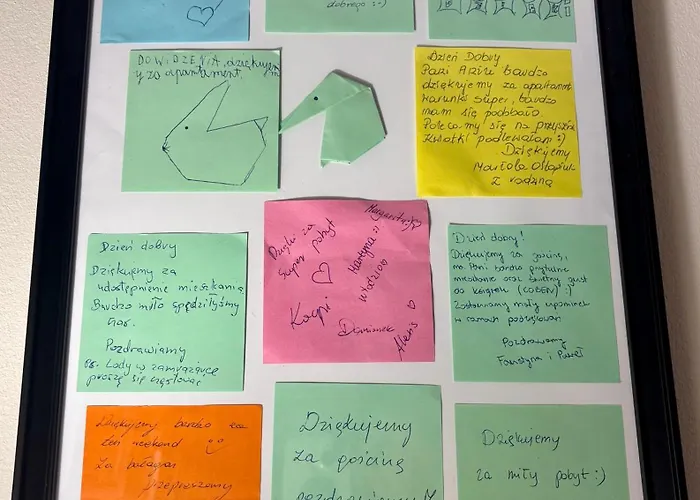 dobrego :-)
DOWIDZENIA, dziękujemy
za apartament.
Dzień Dobry
Pani bardzo
dziękujemy za apartament
warunki super, bardzo
nam się podobało.
Polecamy się na przyszłość
Kwiatki podlewałam :)
Dziękujemy
Mariola
z rodziną
Dzięki za
super pobyt
Małgorzata
Martyna :)
Kacpi
Dominik
Alexis
Dzień dobry
Dziękujemy za
udostępnienie mieszkania
Bardzo miło spędziłyśmy
czas.
Pozdrawiamy
Ps. Lody w zamrażarce
proszę się częstować
Dzień dobry!
Dziękujemy za gościnę,
ma Pani bardzo przytulne
mieszkanie oraz świetny gust
do książek (COBEN) :)
Zostawiamy mały upominek
w ramach podziękowań
Pozdrawiamy
Faustyna i Paweł
Dziękujemy bardzo za
ten weekend
Za bałagan
przepraszamy
Dziękujemy
za gościnę
pozdrawiamy
Dziękujemy
za miły pobyt :)